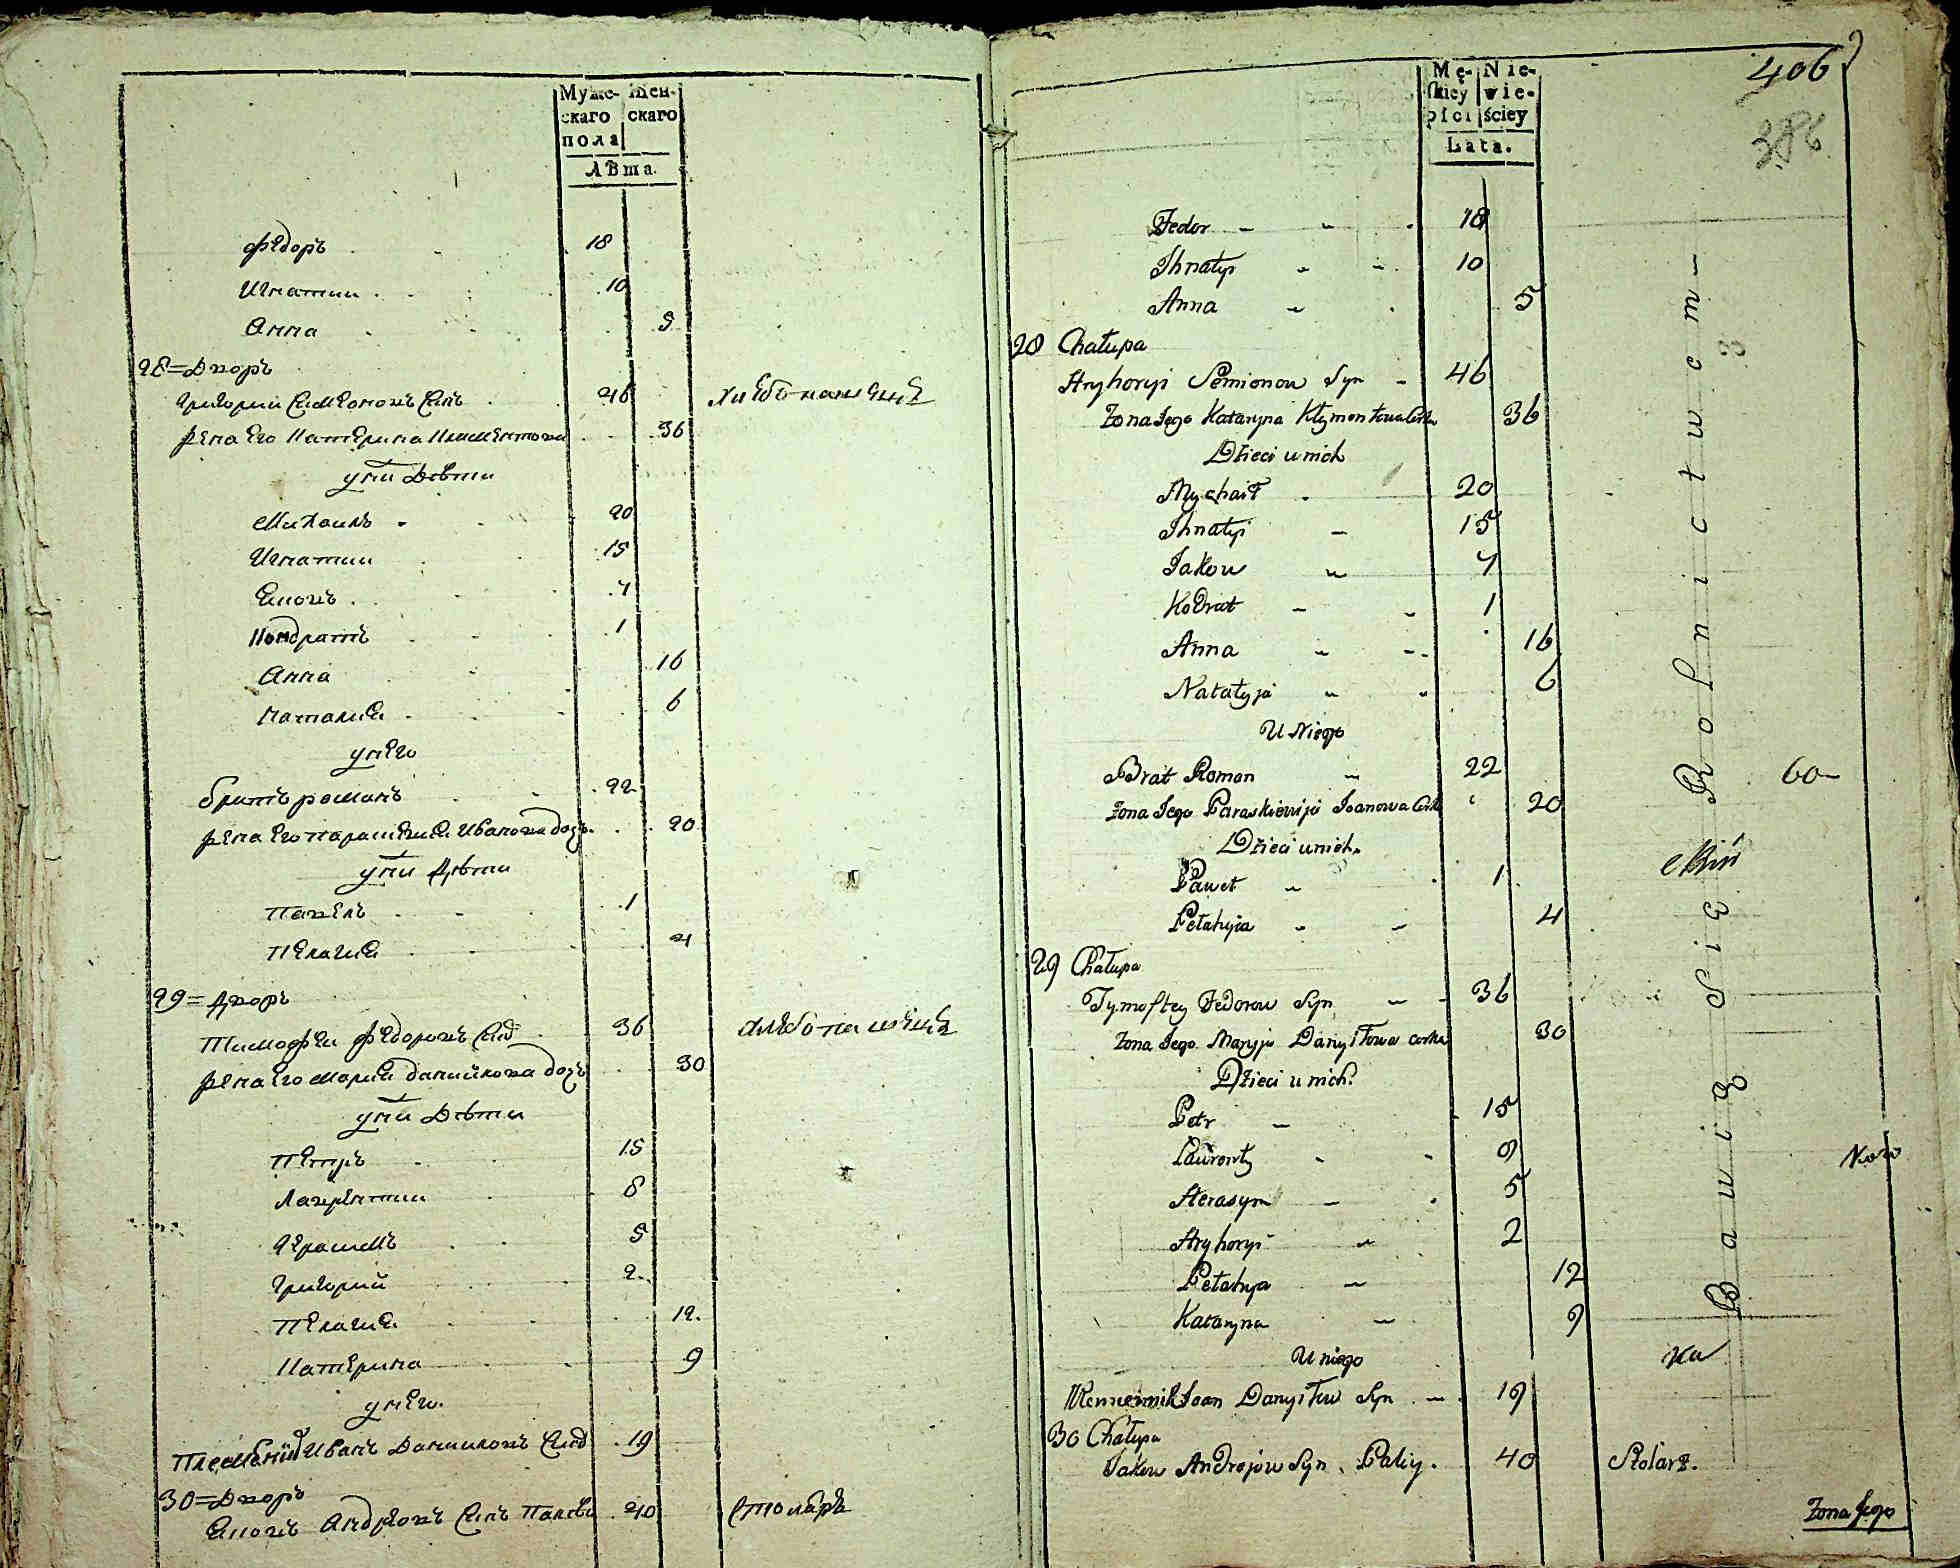 Муже-
скаго
пола
Жен-
скаго
Лѣта.
Ѳедоръ 18
Игнатий 10
Анна 5
28 = Дворъ
Григорий Симеоновъ Синъ 46 хлѣбопашецъ
жена Его Катерина Климентова 36
у ни Дѣти
Михаилъ 20
Игнатии 15
Яковъ 7
Кондратъ 1
Анна 16
Наталия 6
у него
братъ романъ 22
жена Его параскевия Иванова доч. 20
у ни Дѣти
Павелъ 1
Пелагия 4
29 = Дворъ
Тимофеи Федоровъ Синъ 36 хлѣбопашецъ
жена Его Мария Данийлова дочъ 30
у ни Дѣти
Петръ 15
Лаврентии 8
Герасимъ 5
Григорий 2
Пелагия 12
Катерина 9
у него
Племѣнникъ Иванъ Данииловъ Синъ 19
30 = Дворъ
Яковъ Андреовъ Синъ Палѣй 40 столяръ
406
386
Mę-
skiey
płci
Nie-
wie-
ściey
Lata.
Fedor 18
Ihnatyi 10
Anna 5
28 Chałupa
Hryhoryi Semionow Syn 46
Żona Jego Kataryna Kłymontowa Cork 36
Dzieci u nich
Mychaił 20
Ihnatyi 15
Jakow 7
Kodrat 1
Anna 16
Natałyja 6
U Niego
Brat Roman 22
Żona Jego Paraskiewija Joanowa Cork 20
Dzieci u nich
Paweł 1
Pełahyja 4
29 Chałupa
Tymoftey Fedorow Syn 36
Żona Jego Maryja Danyłowa corka 30
Dzieci u nich
Petr 15
Ławrenty 8
Herasym 5
Hryhoryi 2
Pełahya 12
Kataryna 9
U niego
Joan Danyłow Syn 19
30 Chałupa
Jakow Andrejow Syn Paliy. 40 Stolarz.
Bawią Się Rolnictwem
60
Żona Jego